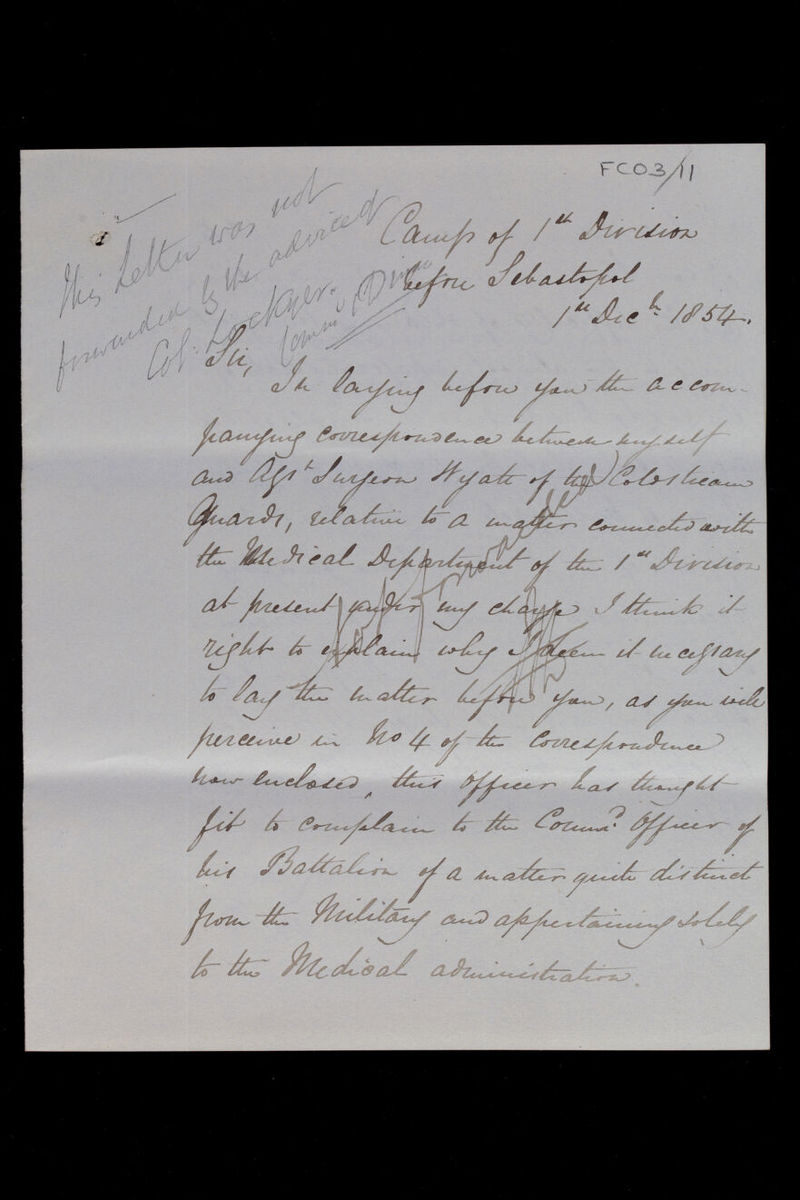 FCO3/11
This Letter was not
forwarded by the advice of
Col: Lockyer.
Comm: Divn
Camp of 1st Division
before Sebastopol
1st Decr 1854.
Sir,
In laying before you the accom-
panying correspondence between myself
and Asst Surgeon Wyatt of the Coldstream
Guards, relative to a matter connected with
the Medical Department of the 1st Division
at present under my charge I think it
right to explain why I deem it necessary
to lay the matter before you, as you will
perceive in No 4 of the correspondence
now enclosed, this officer has thought
fit to complain to the Commg Officer of
his Battalion of a matter quite distinct
from the Military and appertaining solely
to the Medical administration.
Not forwarded